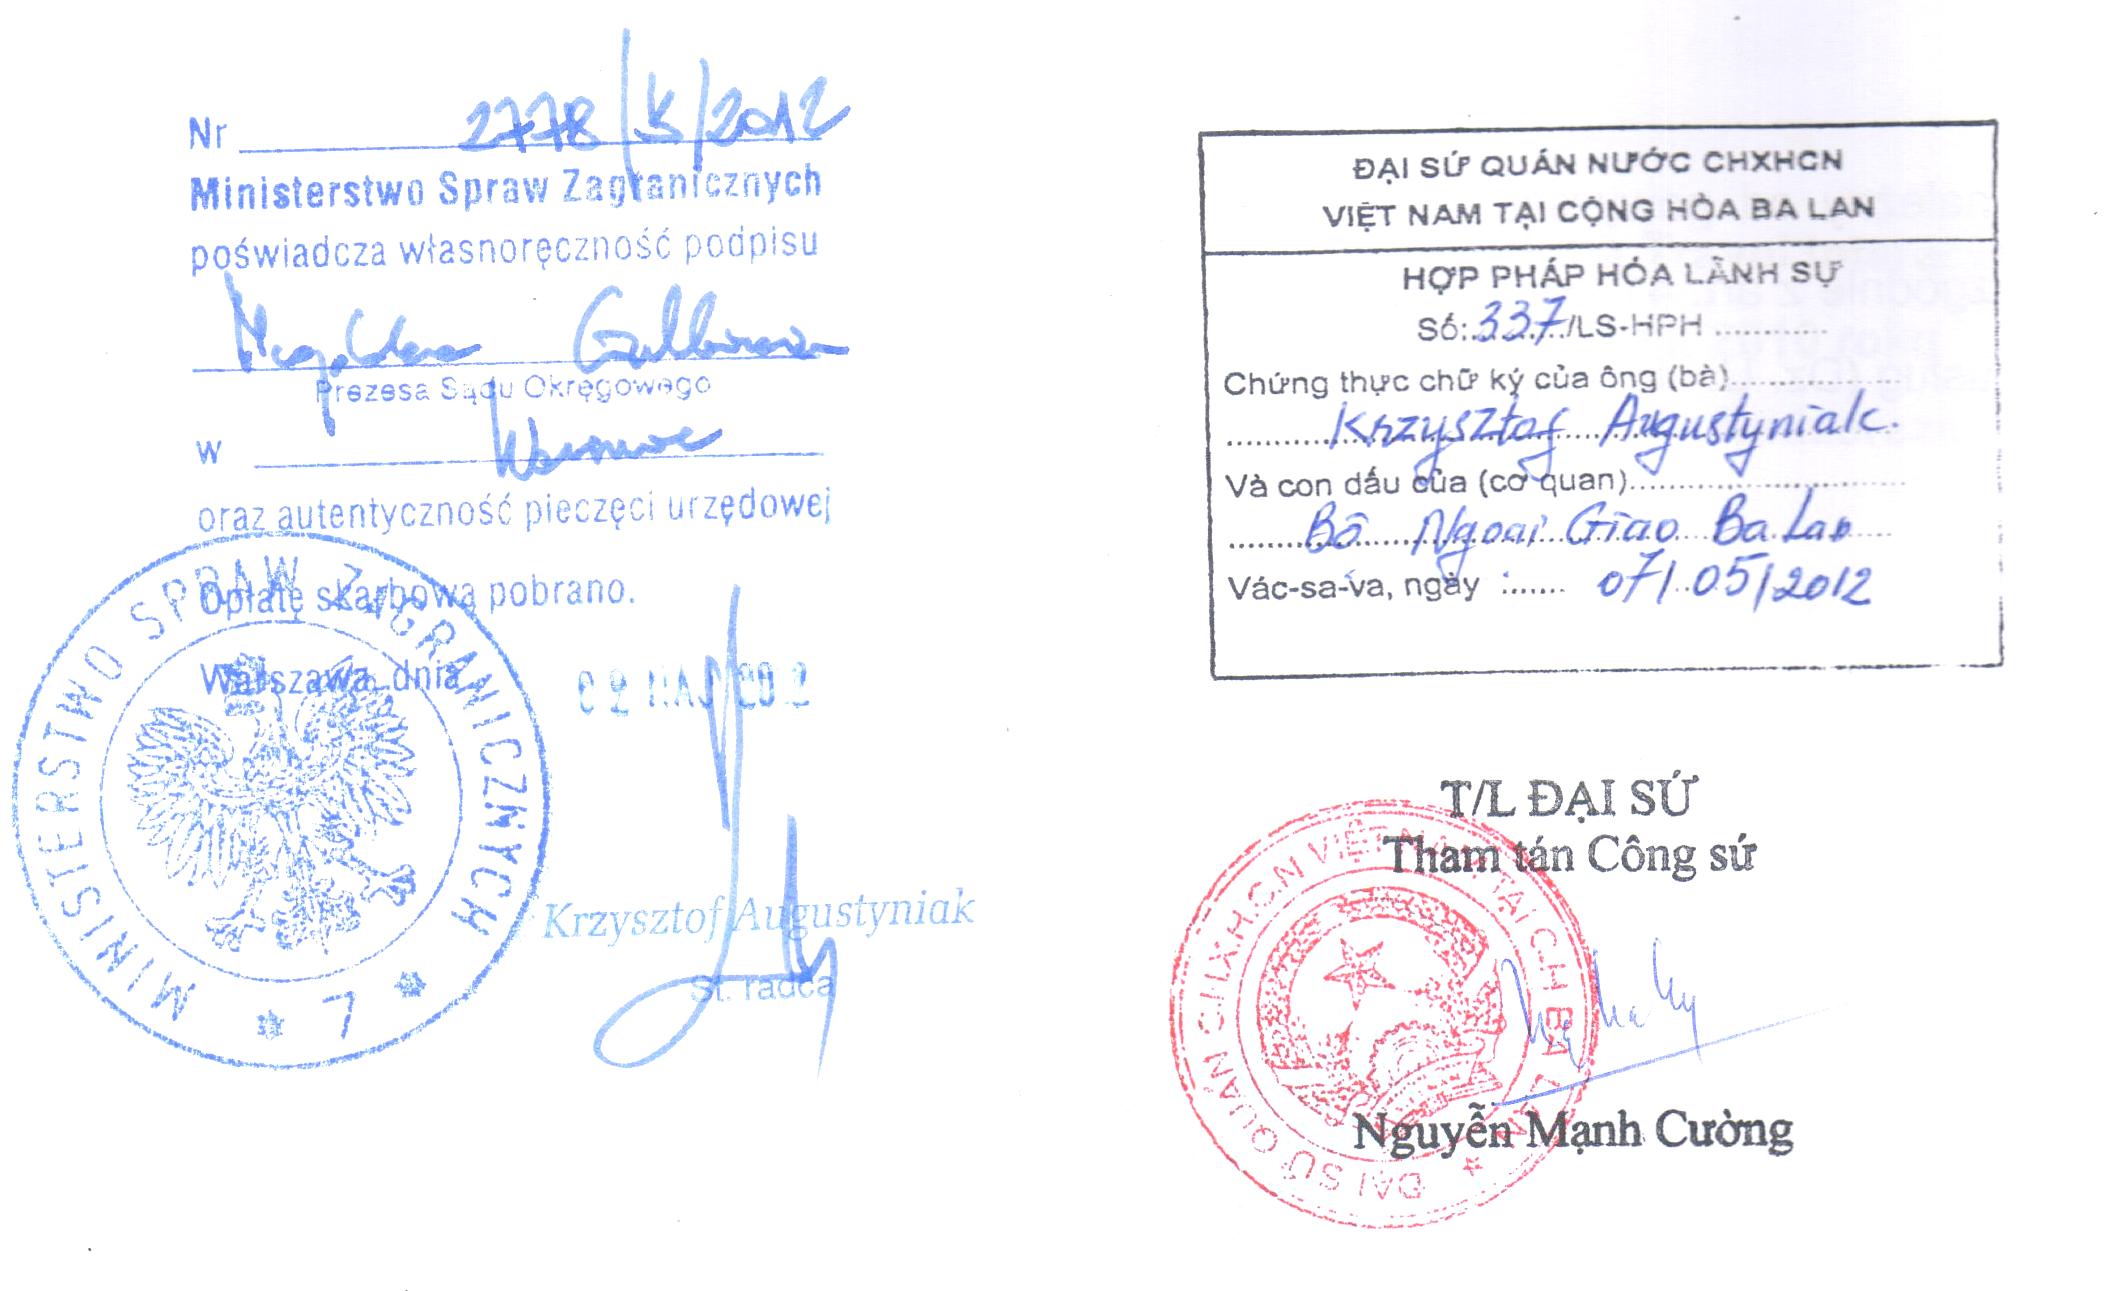 Nr 2778/K/2012
Ministerstwo Spraw Zagranicznych
poświadcza własnoręczność podpisu
Prezesa Sądu Okręgowego
w Warszawie
oraz autentyczność pieczęci urzędowej
Opłatę skarbową pobrano.
Warszawa, dnia 02 MAJ 2012
MINISTERSTWO SPRAW ZAGRANICZNYCH
* 7 *
Krzysztof Augustyniak
St. radca
ĐẠI SỨ QUÁN NƯỚC CHXHCN
VIỆT NAM TẠI CỘNG HÒA BA LAN
HỢP PHÁP HÓA LÃNH SỰ
Số: 337/LS-HPH ............
Chứng thực chữ ký của ông (bà)..................
Krzysztof Augustyniak.
Và con dấu của (cơ quan)..............................
Bộ Ngoại Giao Ba Lan
Vác-sa-va, ngày :....... 07/05/2012
T/L ĐẠI SỨ
Tham tán Công sứ
ĐẠI SỨ QUÁN CHXHCN VIỆT NAM TẠI CH BA LAN
Nguyễn Mạnh Cường